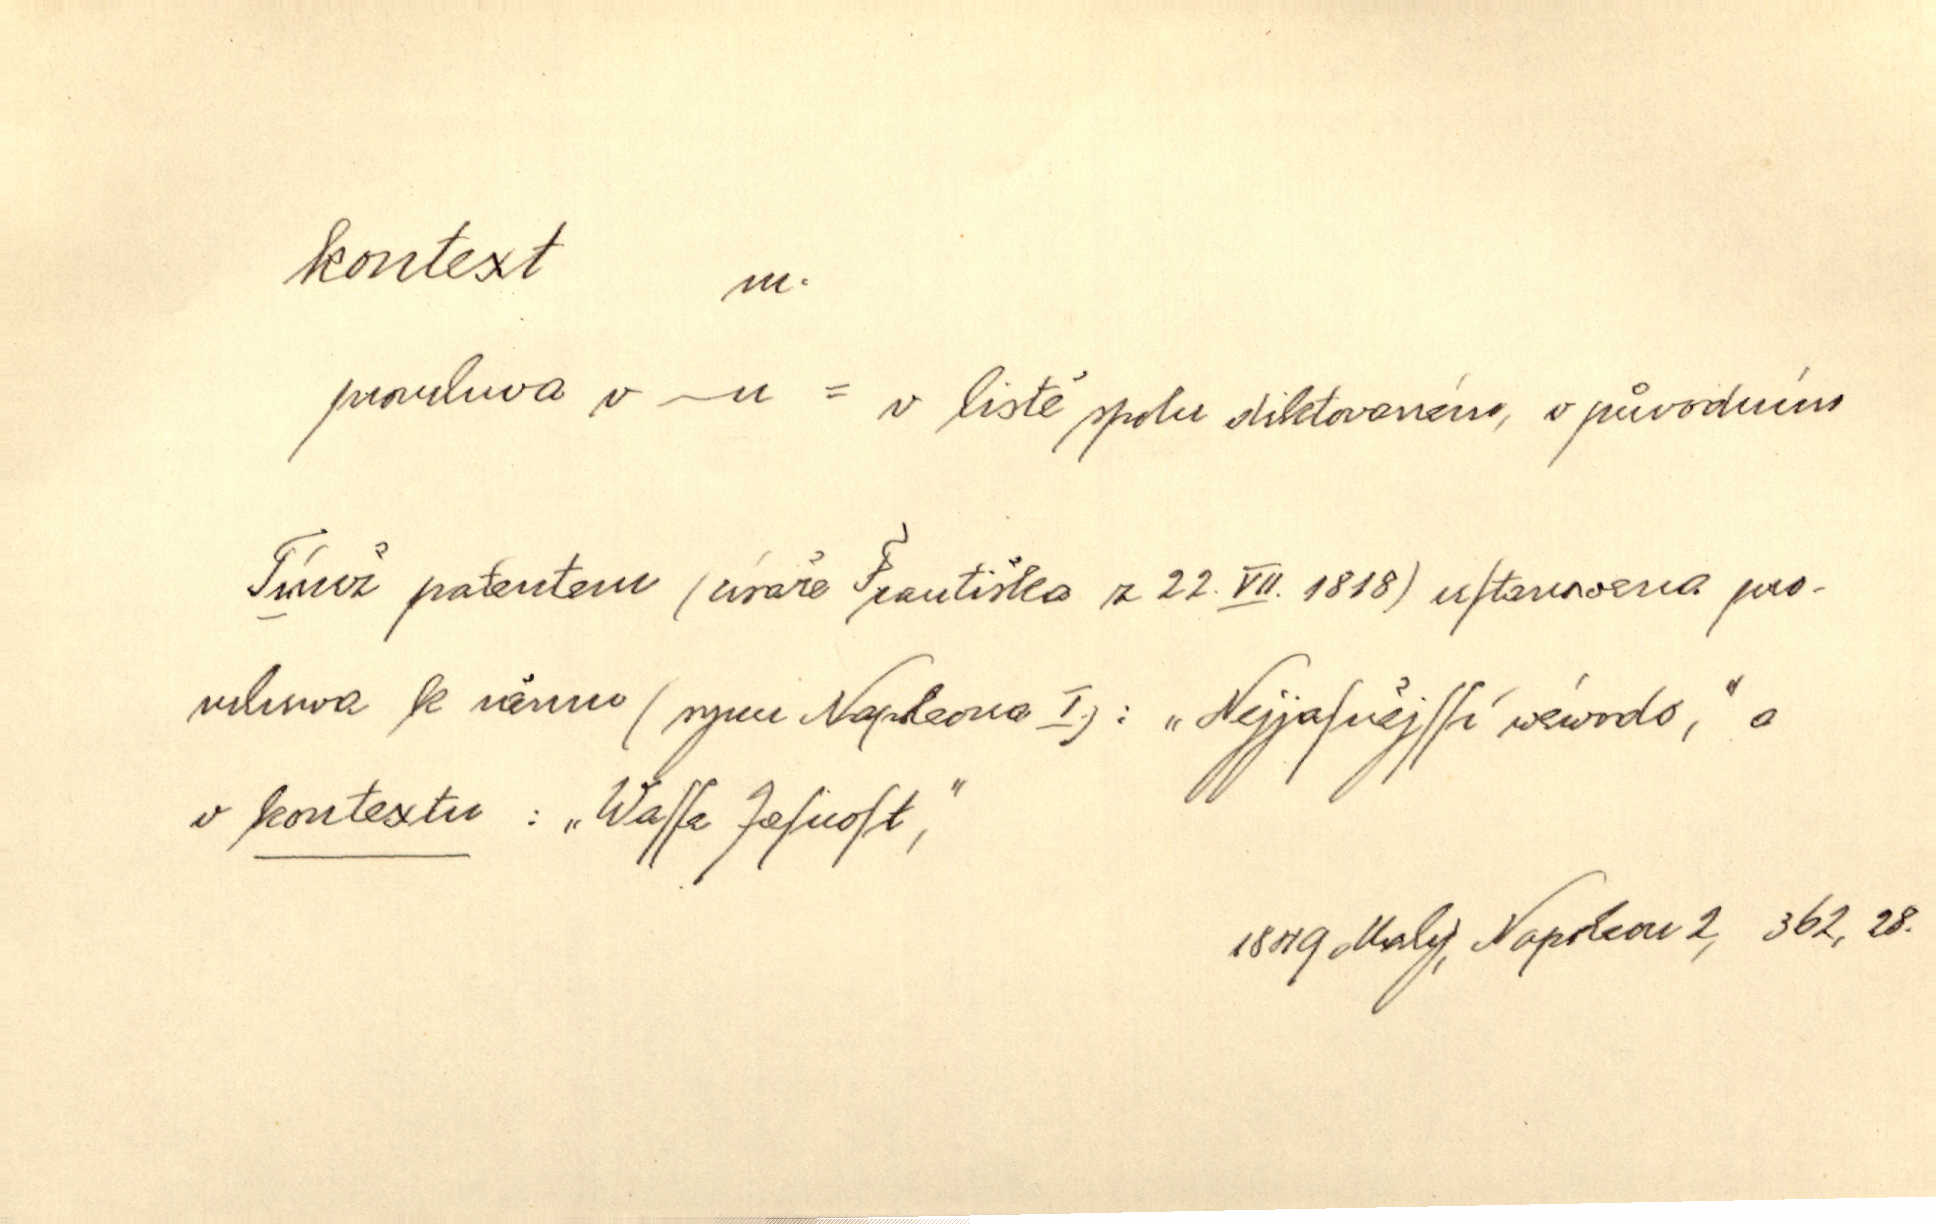 kontext m.
promluva v ~u = v listě spolu diktovaném, v původním
Tímž patentem (císaře Františka z 22. VII. 1818) uſtanovena pro-
mluwa k němu (synu Napoleona I.): „Nejjaſnějſſí wéwodo,“ a
v kontextu : „Waſſe Jaſnoſt,“
Malý, Napoleon 2, 362, 28.